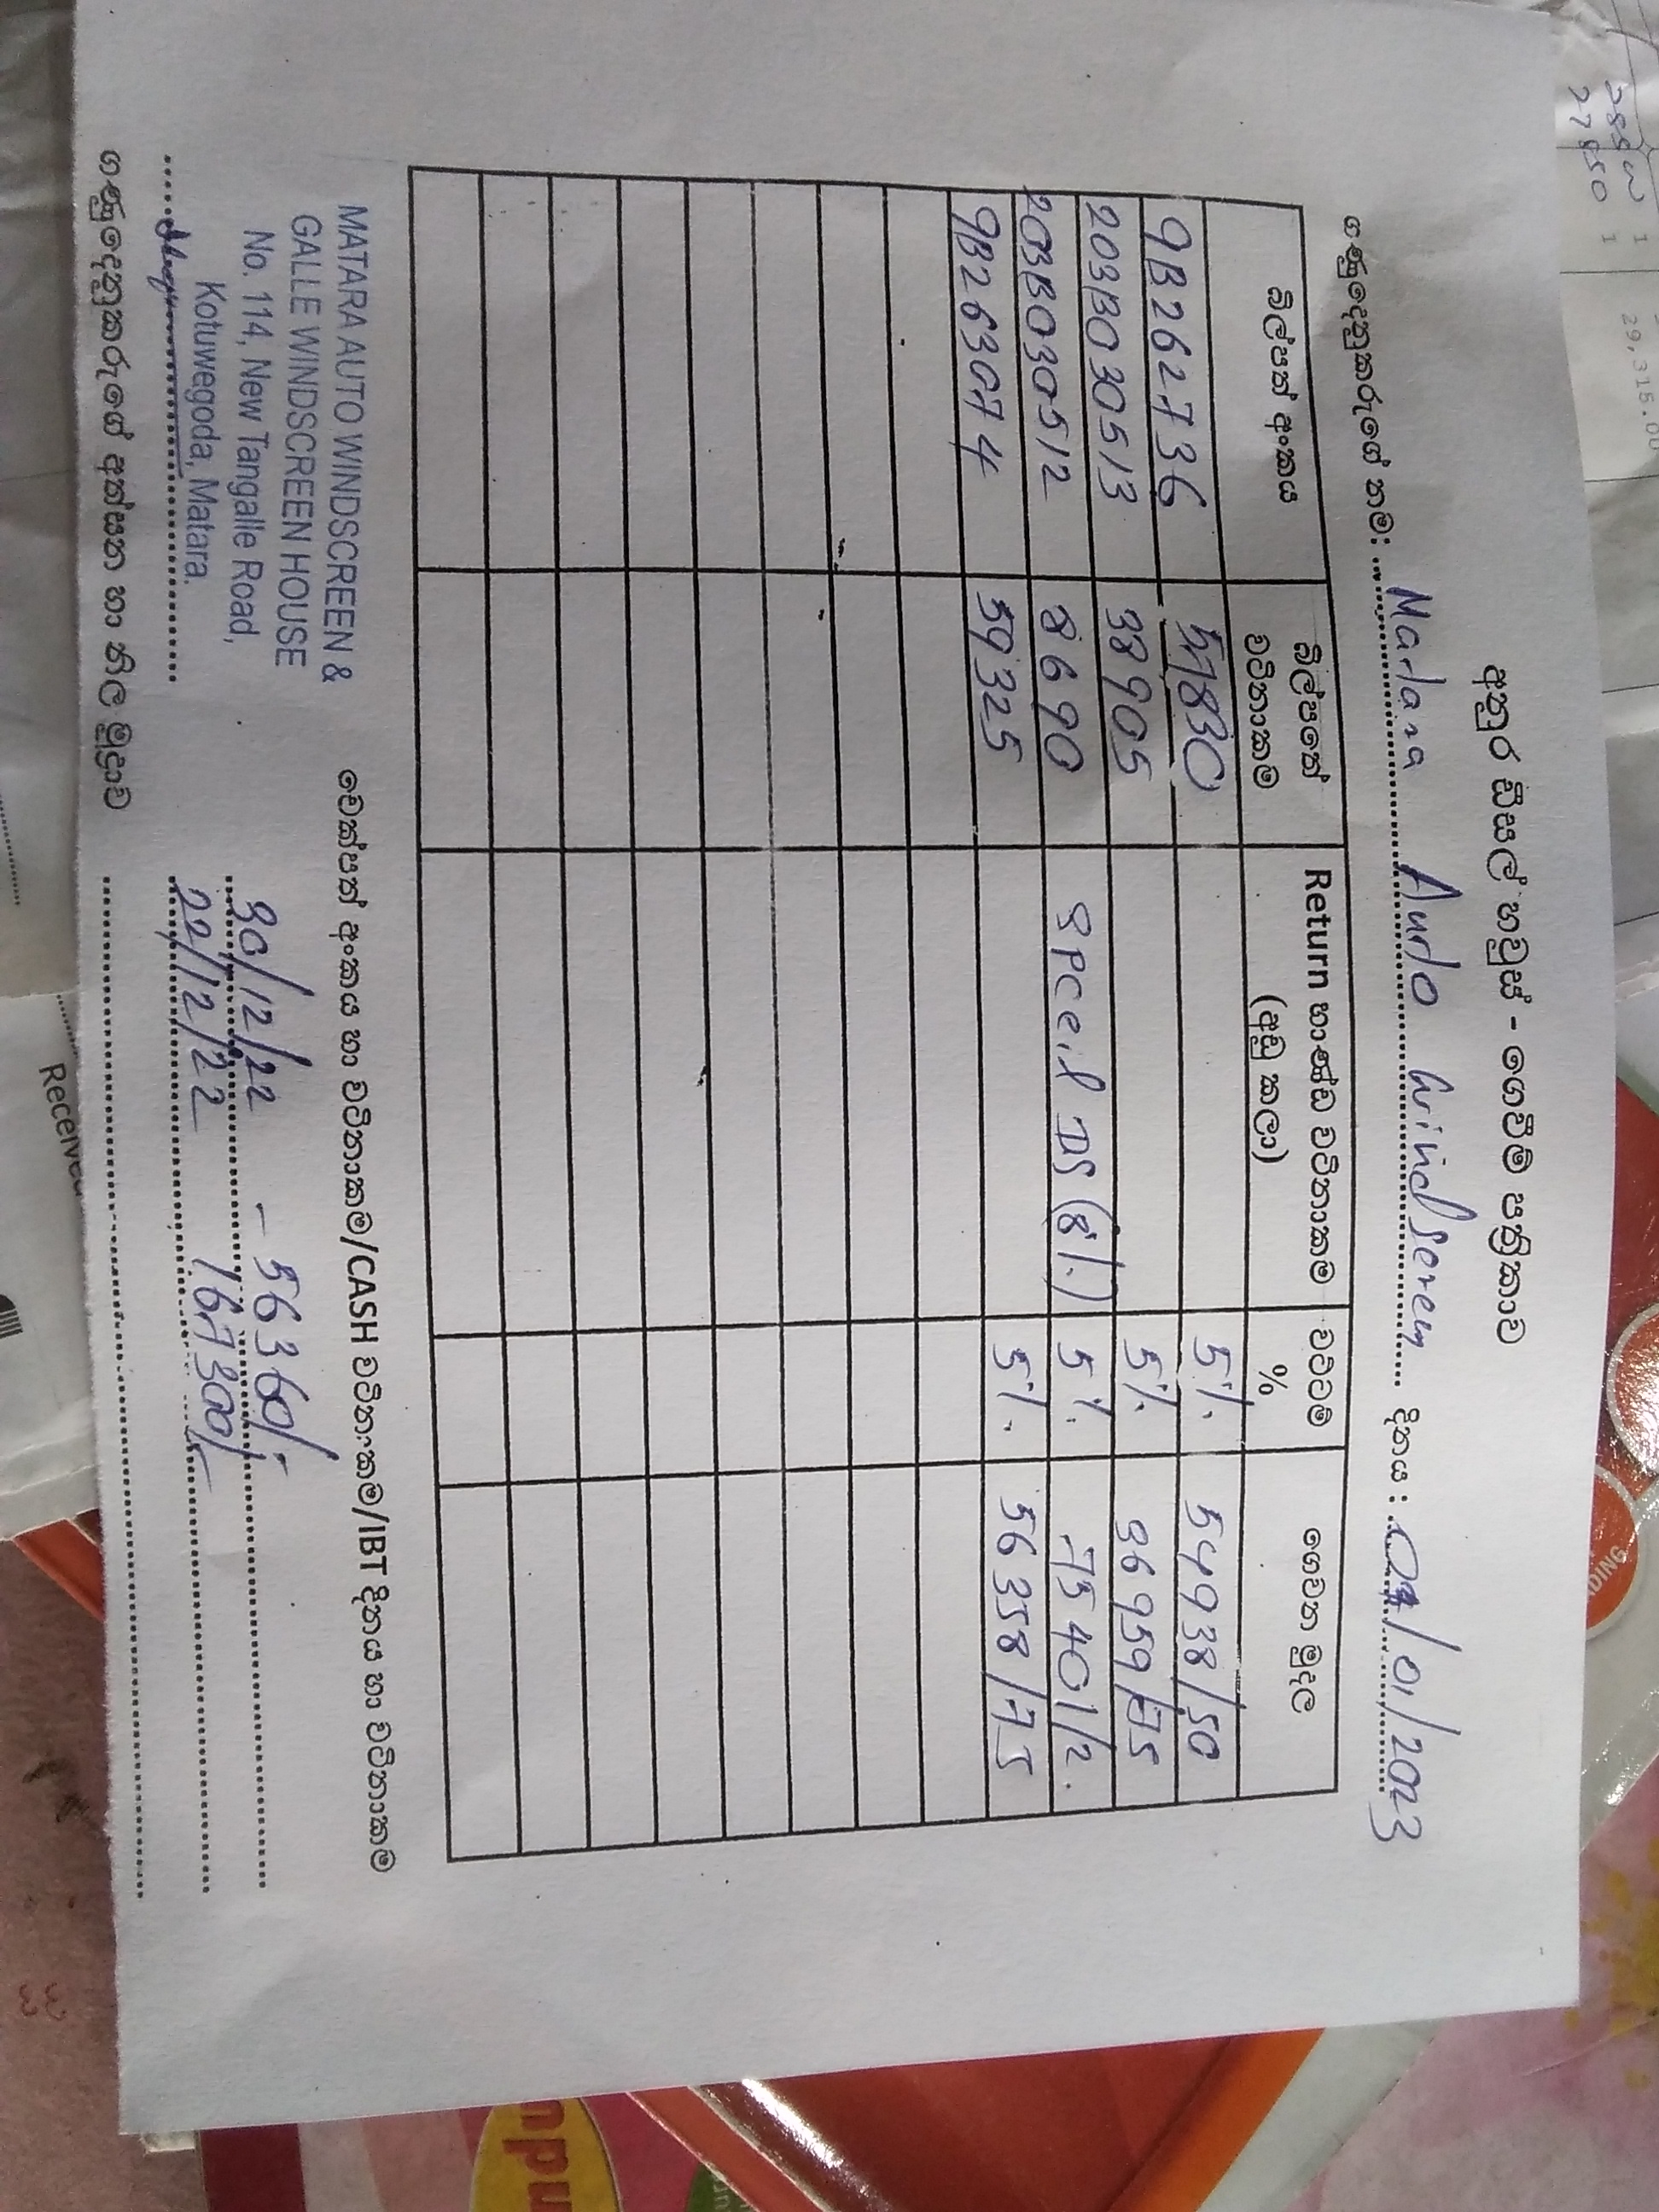 අනුර ඩීසල් හවුස් - ගෙවීම් පත්‍රිකාව
ගණුදෙනුකරුගේ නම: Matara Auto Windscreen දිනය : 01/01/2023
බිල්පත් අංකය බිල්පතේ වටිනාකම Return භාණ්ඩ වටිනාකම (අඩු කලා) වට්ටම් % ගෙවන මුදල
9B262736 57830 5%. 54938/50
203B030513 38905 5%. 36959/75
203B030512 8690 Speeil DS (8%.) 5%. 7540/2.
9B263074 59325 5%. 56358/75
චෙක්පත් අංකය හා වටිනාකම/CASH වටිනාකම/IBT දිනය හා වටිනාකම
MATARA AUTO WINDSCREEN &
GALLE WINDSCREEN HOUSE
No. 114, New Tangalle Road,
Kotuwegoda, Matara.
30/12/22 - 56360/-
22/12/22 167300/-
ගණුදෙනුකරුගේ අත්සන හා නිල මුද්‍රාව
29,315.00
27850 1
33